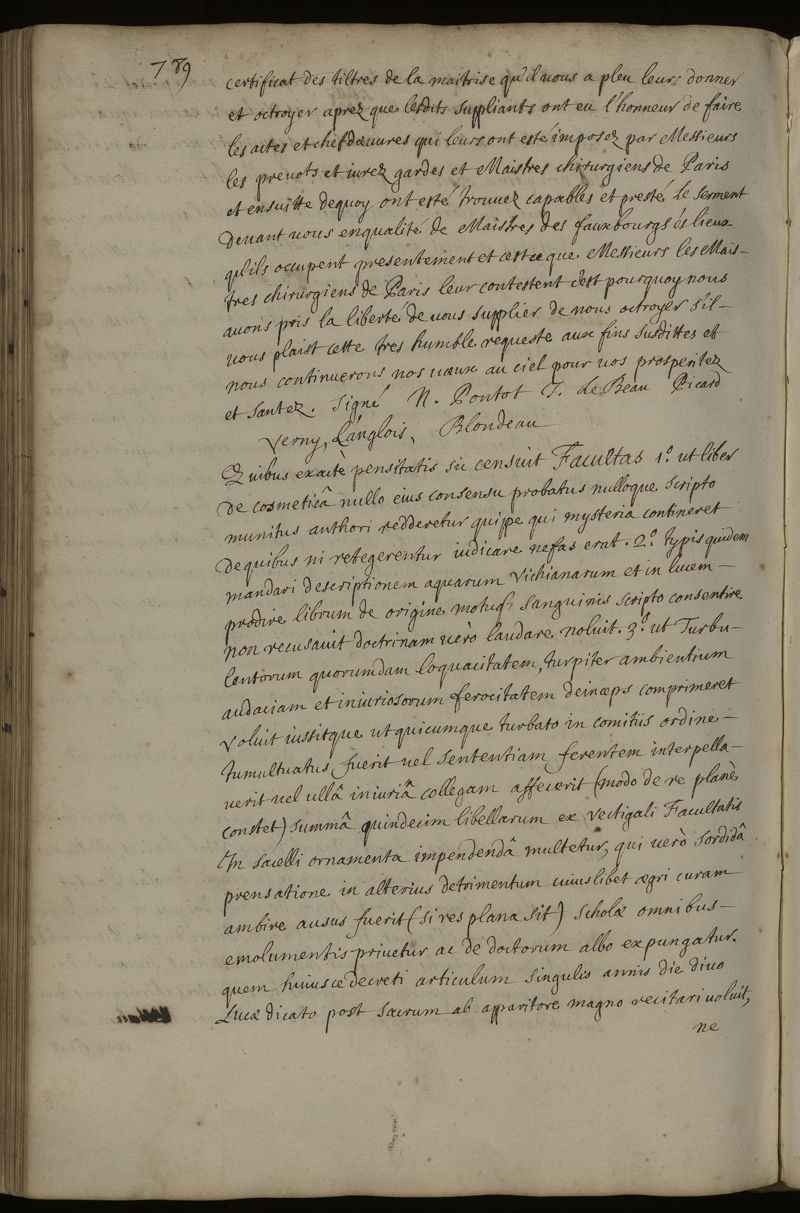 789
certificat des tiltres de la maitrise qu'il vous a pleu leurs donner
et octroyer aprez que lesdits suppliants ont eu l'honneur de faire
les actes et chefdœuvres qui leurs ont esté imposez par Messieurs
les prevots et iurez gardes et Maistres chirurgiens de Paris
et ensuitte dequoy ont esté trouvez capables et presté le serment
Devant vous enqualité de Maistres des fauxbourgs és lieux
qu'ils occupent presentement et cest ce que Messieurs les Mais-
tres chirurgiens de Paris leur contestent c'est pourquoy nous
avons pris la liberté de vous supplier de nous octroyer s'il-
vous plaist cette tres humble requeste aux fins susdittes et
nous continuerons nos vœux au ciel pour vos prosperitez
et santez. Signé N. Pontot T. de Beau Picard
Verny, Langlois, Blondeau
Quibus exactè pensitatis sic censuit Facultas 1.º ut liber
De cosmeticâ nullo eius consensu probatus nulloque scripto
munitus authori redderetur quippe qui mysteria contineret
De quibus ni retegerentur iudicare nefas erat. 2.º typis quidem
mandari descriptionem aquarum Vichianarum et in lucem-
prodire librum de origine motuq; sanguinis scripto consentire
non recusavit doctrinam verò laudare noluit. 3.º ut Turbu-
lentorum quorumdam loquacitatem, turpiter ambientium
audaciam et iniuriosorum ferocitatem deinceps comprimeret
voluit iussitque ut quicumque turbato in comitiis ordine-
tumultuatus fuerit vel sententiam ferentem interpella-
verit vel ullâ iniuriâ collegam affecerit (modo de re planè
constet) summâ quindecim libellarum ex vectigali Facultatis
In sacelli ornamenta impendendâ multetur, qui verò sordidâ
prensatione in alterius detrimentum cuiuslibet ægri curam
ambire ausus fuerit (si res plana sit) scholæ omnibus-
emolumentis privetur ac de doctorum albo expungatur.
quem huiusce decreti articulum singulis annis die divo
Lucæ dicato post sacrum ab apparitore magno recitari voluit,
ne